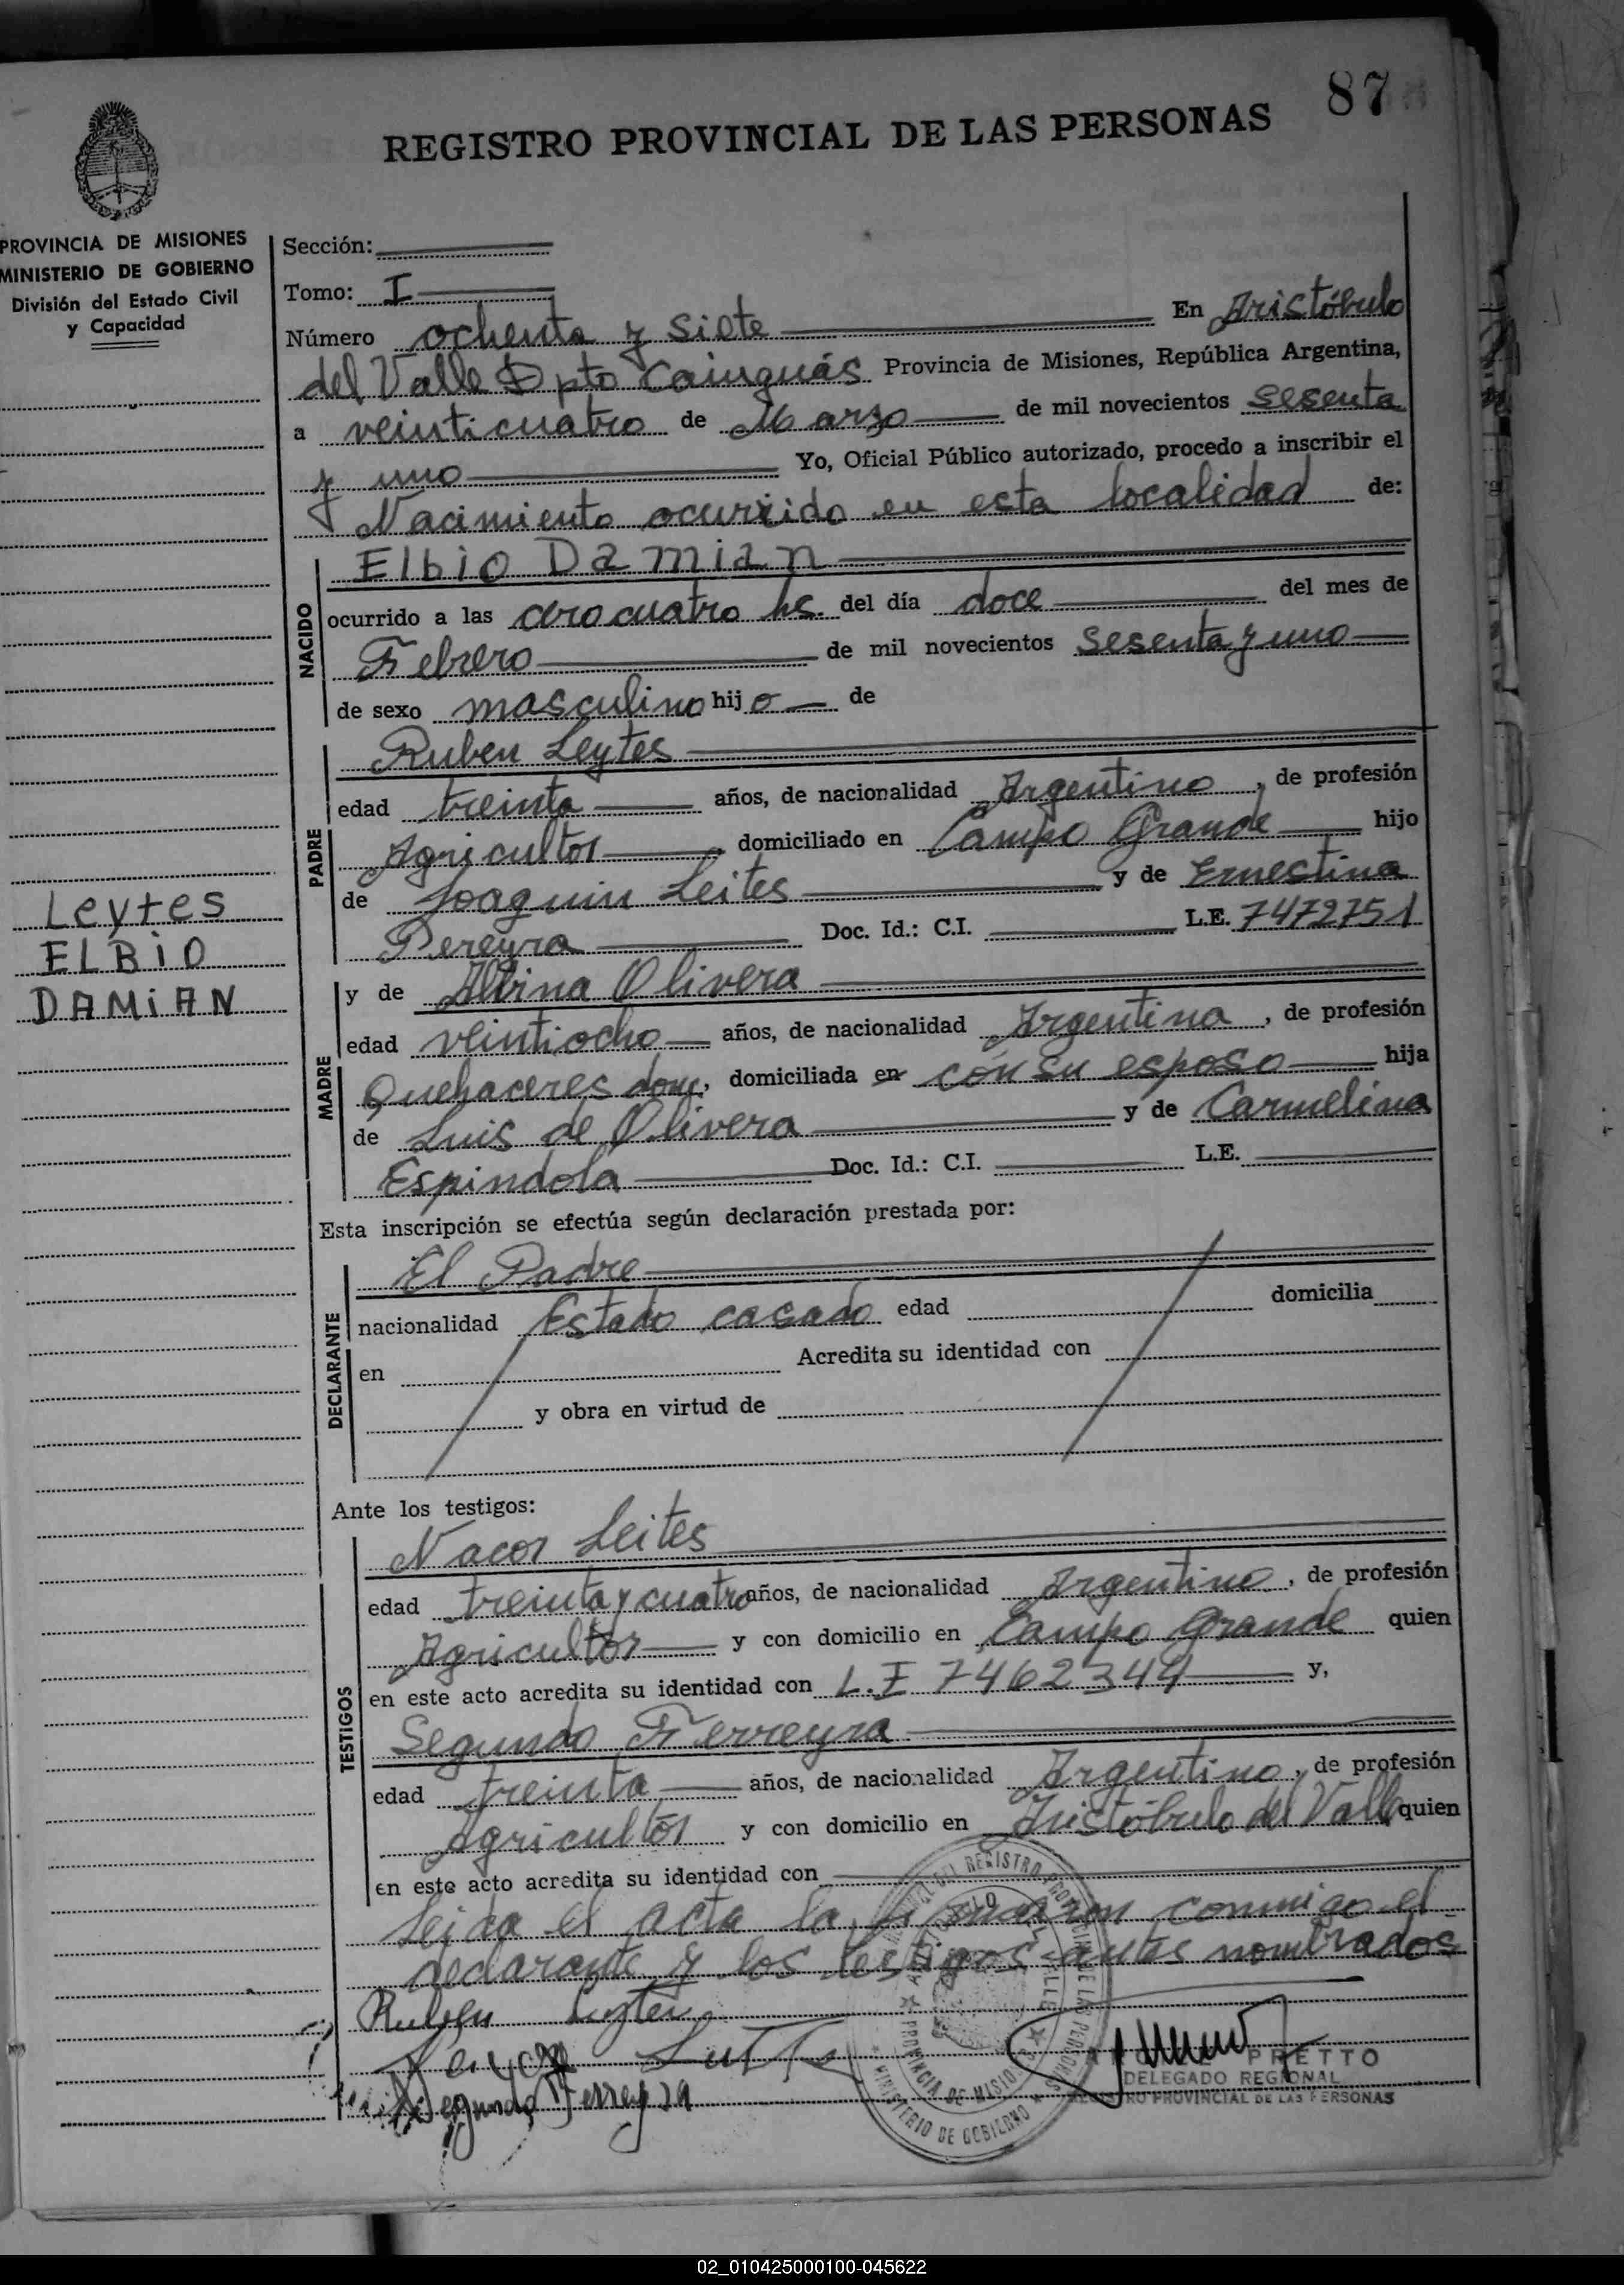 87
REGISTRO PROVINCIAL DE LAS PERSONAS
PROVINCIA DE MISIONES
MINISTERIO DE GOBIERNO
División del Estado Civil
y Capacidad
Sección:
Tomo: I
Número ochenta y siete En Aristóbulo
del Valle Dpto Cainguás Provincia de Misiones, República Argentina,
a veinticuatro de Marzo de mil novecientos sesenta
y uno Yo, Oficial Público autorizado, procedo a inscribir el
Nacimiento ocurrido en esta localidad de:
NACIDO
Elbio Damian
ocurrido a las cero cuatro hs. del día doce del mes de
Febrero de mil novecientos sesenta y uno
de sexo masculino hijo de
PADRE
Ruben Leytes
edad treinta años, de nacionalidad Argentino, de profesión
Agricultor domiciliado en Campo Grande hijo
de Joaquin Leites y de Ernestina
Pereyra Doc. Id.: C.I. L.E. 7472751
Leytes
ELBIO
DAMIAN
MADRE
y de Albina Olivera
edad veintiocho años, de nacionalidad Argentina, de profesión
Quehaceres dom, domiciliada en con su esposo hija
de Luis de Olivera y de Carmelina
Espindola Doc. Id.: C.I. L.E.
Esta inscripción se efectúa según declaración prestada por:
DECLARANTE
El Padre
nacionalidad Estado casado edad domicilia
en Acredita su identidad con
y obra en virtud de
Ante los testigos:
TESTIGOS
Nacor Leites
edad treinta y cuatro años, de nacionalidad Argentino, de profesión
Agricultor y con domicilio en Campo Grande quien
en este acto acredita su identidad con L.E 7462344 y,
Segundo Ferreyra
edad treinta años, de nacionalidad Argentino, de profesión
Agricultor y con domicilio en Aristóbulo del Valle quien
en este acto acredita su identidad con
Leida el acta la firmaron conmigo el
declarante y los testigos antes nombrados
Ruben Leytes
Segundo Ferreyra
PRETTO
DELEGADO REGIONAL
REGISTRO PROVINCIAL DE LAS PERSONAS
PROVINCIA DE MISIONES
MINISTERIO DE GOBIERNO
02_010425000100-045622